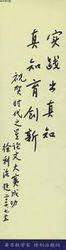 实践出真知
真知育创新
祝贺时代之星论文大赛成功
徐利治题
著名数学家 徐利治题词